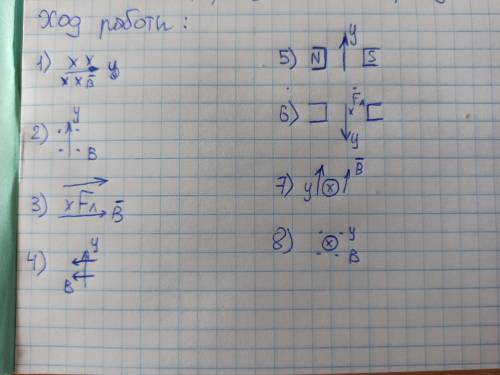 Ход работы:
1) x x y
x x B̅
2) y
B
3) x Fл B̅
4) y
B
5) N y S
6) x F̅л
y
7) y x B̅
8) x y
B